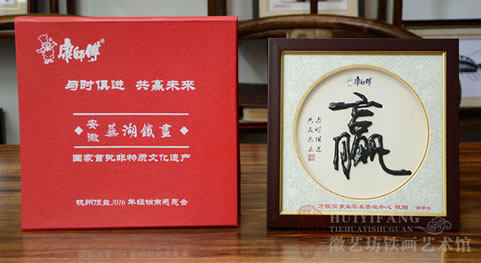 康师傅
与时俱进 共赢未来
安徽 蕪湖鐵畫
国家首批非物质文化遗产
杭州顶益2016年经销商恳恳会
康師傅
赢
与时俱进
共赢未来
HUIYIFANG
TIEHUAYISHUGUAN
徽艺坊铁画艺术馆